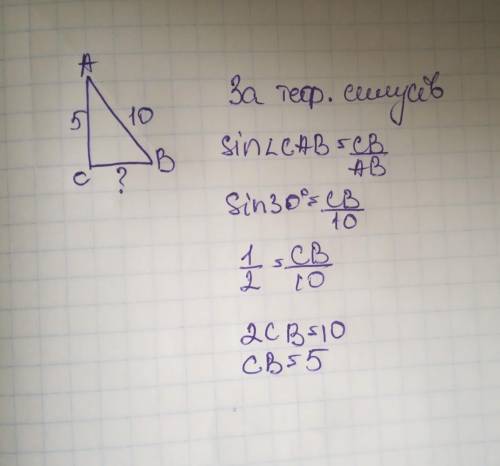 A
5 10
C ? B
За теор. синусів
sin∠CAB = CB/AB
sin30° = CB/10
1/2 = CB/10
2CB=10
CB=5